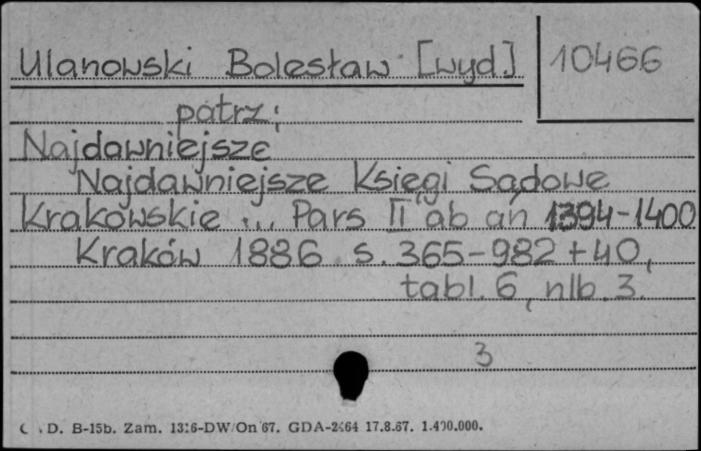 Ulanowski Bolesław [wyd.]
10466
patrz:
Najdawniejsze
Najdawniejsze Księgi Sądowe
Krakowskie ... Pars II ab an 1394-1400
Kraków 1886 s. 365-982+40,
tabl. 6, nlb. 3.
3
D. B-15b. Zam. 1316-DW/On 67. GDA-2464 17.8.67. 1.400.000.